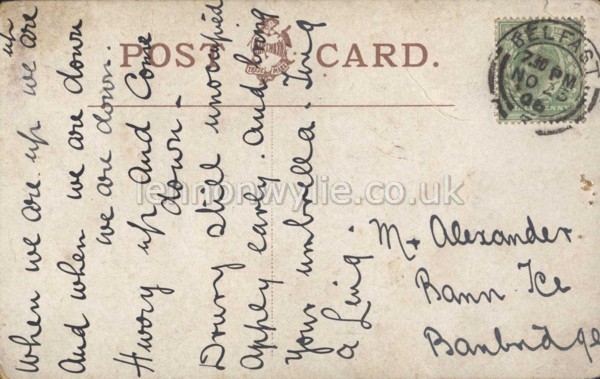 POST CARD.
BELFAST
7.30 PM
NO
06
up
When we are up we are
And when we are down
we are down.
Hurry up and Come
down -
Drury still unoccupied
Apply early. And bring
Your umbrella. Ting
a Ling.
Mr Alexander
Bann Tce
Banbridge
lennonwylie.co.uk